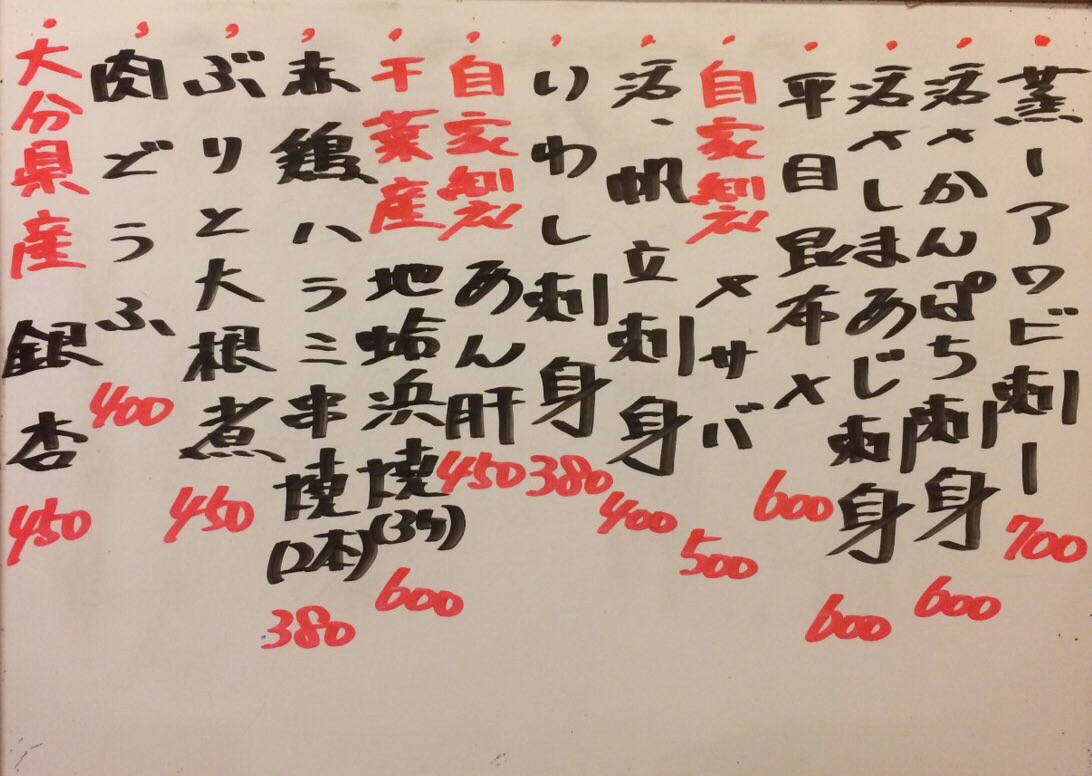 ・蒸しアワビ刺し 700
・活〆かんぱち刺身 600
・活〆しまあじ刺身 600
・平目昆布〆 600
・自家製〆サバ 500
・活、帆立刺身 400
・いわし刺身 380
・自家製あん肝 450
・千葉産地蛤浜焼(3ケ) 600
・赤鶏ハラミ串焼(2本) 380
・ぶりと大根煮 450
・肉どうふ 400
・大分県産銀杏 450